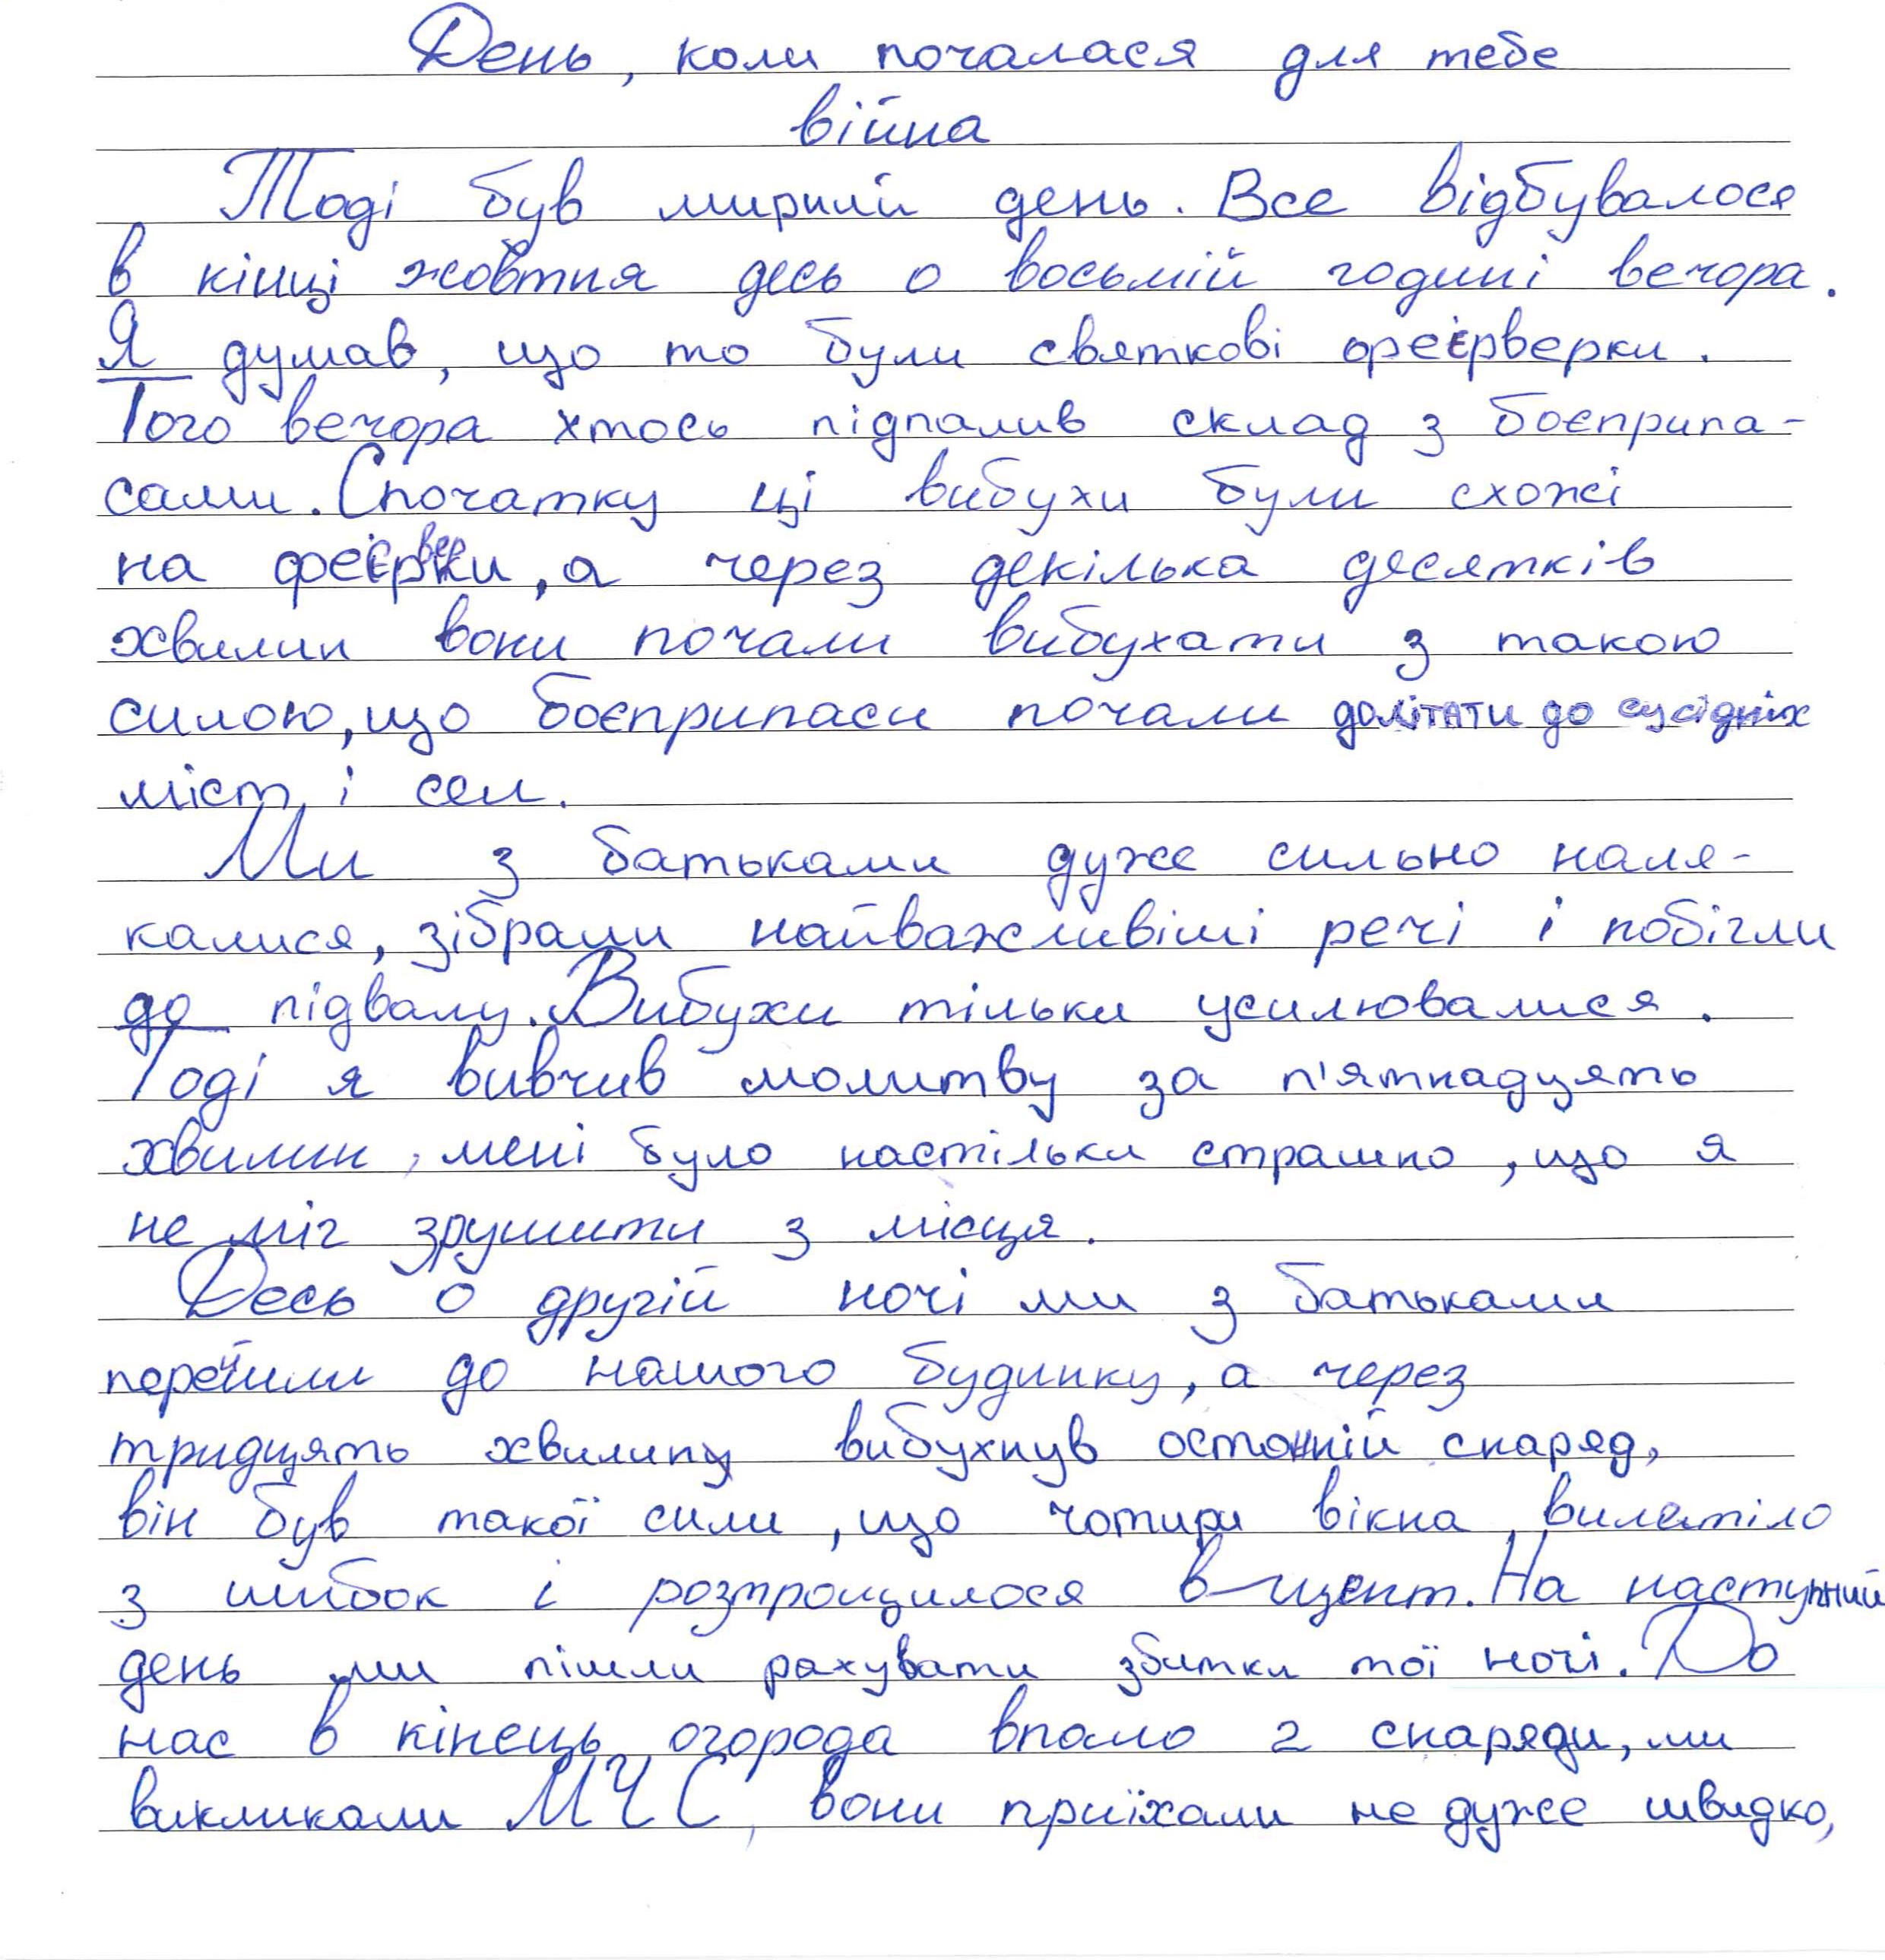 День, коли почалася для тебе
війна
Тоді був мирний день. Все відбувалося
в кінці жовтня десь о восьмій годині вечора.
Я думав, що то були святкові феєрверки.
Того вечора хтось підпалив склад з боєприпа-
сами. Спочатку ці вибухи були схожі
на феєрверки, а через декілька десятків
хвилин вони почали вибухати з такою
силою, що боєприпаси почали долітати до сусідніх
міст і сел.
Ми з батьками дуже сильно наля-
калися, зібрали найважливіші речі і побігли
до підвалу. Вибухи тільки усилювалися.
Тоді я вивчив молитву за п'ятнадцять
хвилин, мені було настільки страшно, що я
не міг зрушити з місця.
Десь о другій ночі ми з батьками
перейшли до нашого будинку, а через
тридцять хвилин вибухнув останній снаряд,
він був такої сили, що чотири вікна вилетіло
з шибок і розтрощилося в щент. На наступний
день ми пішли рахувати збитки тої ночі. До
нас в кінець огорода впало 2 снаряди, ми
викликали МЧС, вони приїхали не дуже швидко,